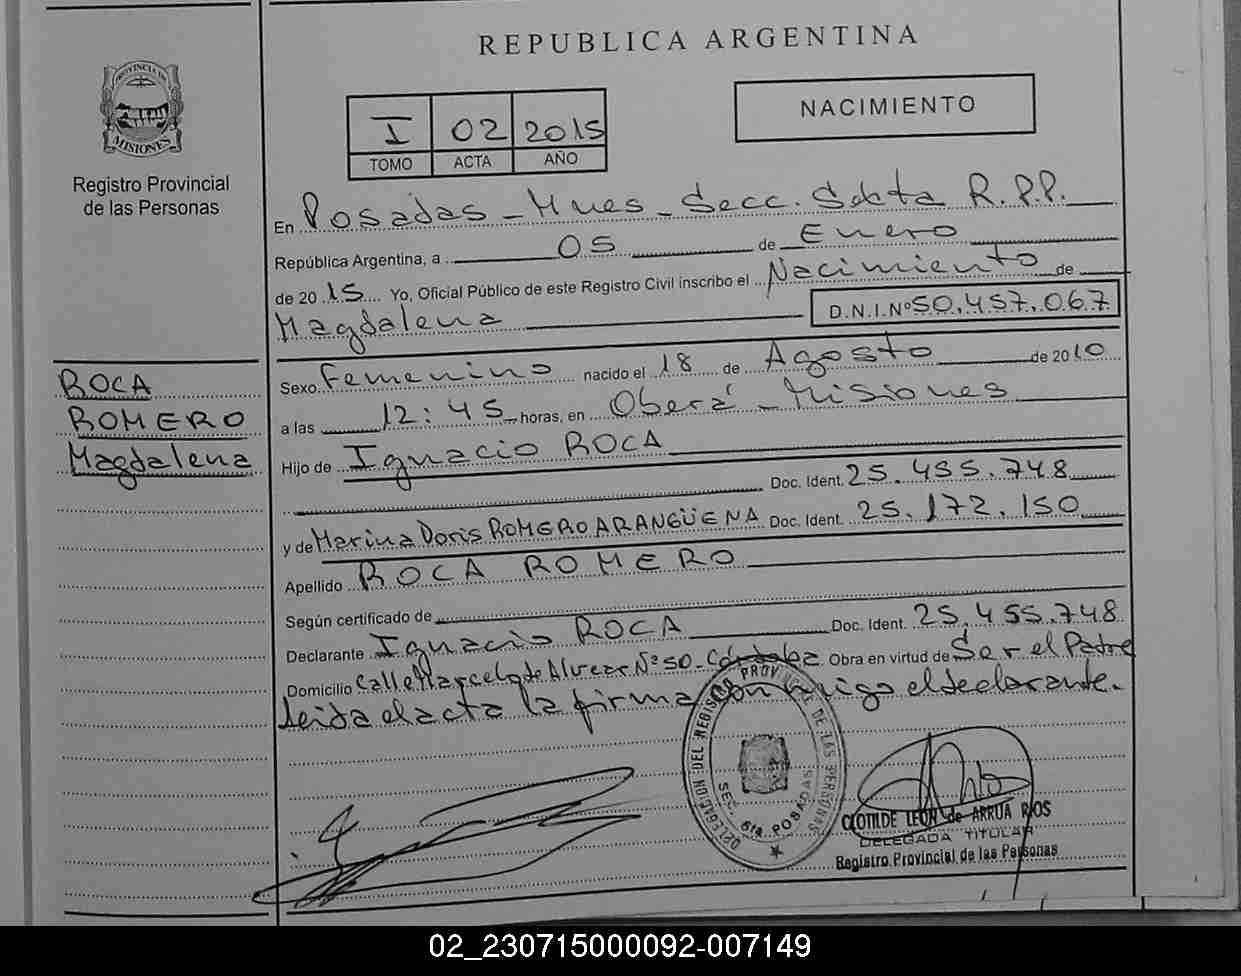 REPUBLICA ARGENTINA
PROVINCIA DE
MISIONES
Registro Provincial
de las Personas
I 02 2015
TOMO ACTA AÑO
NACIMIENTO
En Posadas - Mnes - Secc. Sexta R.P.P.
República Argentina, a 05 de Enero
de 2015 Yo, Oficial Público de este Registro Civil inscribo el Nacimiento de
Magdalena D.N.I.Nº 50.457.067
ROCA
ROMERO
Magdalena
Sexo Femenino nacido el 18 de Agosto de 2010
a las 12:45 horas, en Oberá - Misiones
Hijo de Ignacio ROCA
Doc. Ident. 25.455.748
y de Marina Doris ROMERO ARANGÜENA Doc. Ident. 25.172.150
Apellido ROCA ROMERO
Según certificado de
Declarante Ignacio ROCA Doc. Ident. 25.455.748
Domicilio Calle Marcelo de Alvear Nº 50 - Córdoba Obra en virtud de Ser el Padre
leida el acta la firma conmigo el declarante.
DELEGACION DEL REGISTRO PROVINCIAL DE LAS PERSONAS
SEC. 6ta POSADAS
CLOTILDE LEON de ARRUA RIOS
DELEGADA TITULAR
Registro Provincial de las Personas
02_230715000092-007149